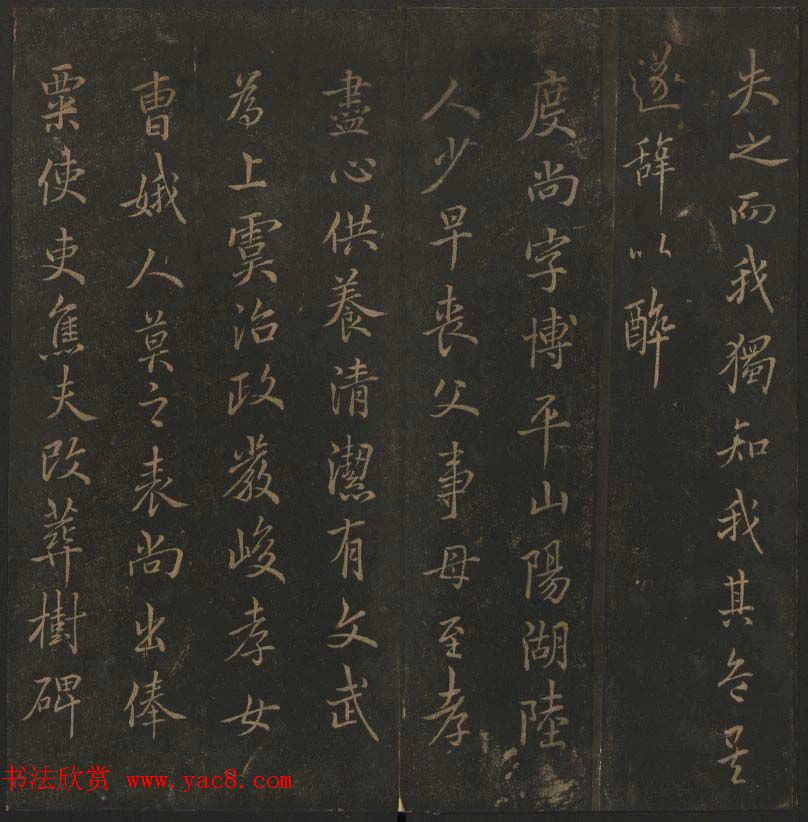 失之而我獨知我其危矣
遂辭以醉
度尚字博平山陽湖陸
人少早喪父事母至孝
盡心供養清潔有文武
為上虞治政嚴峻孝女
曹娥人莫之表尚出俸
粟使吏焦夫改葬樹碑
书法欣赏 www.yac8.com